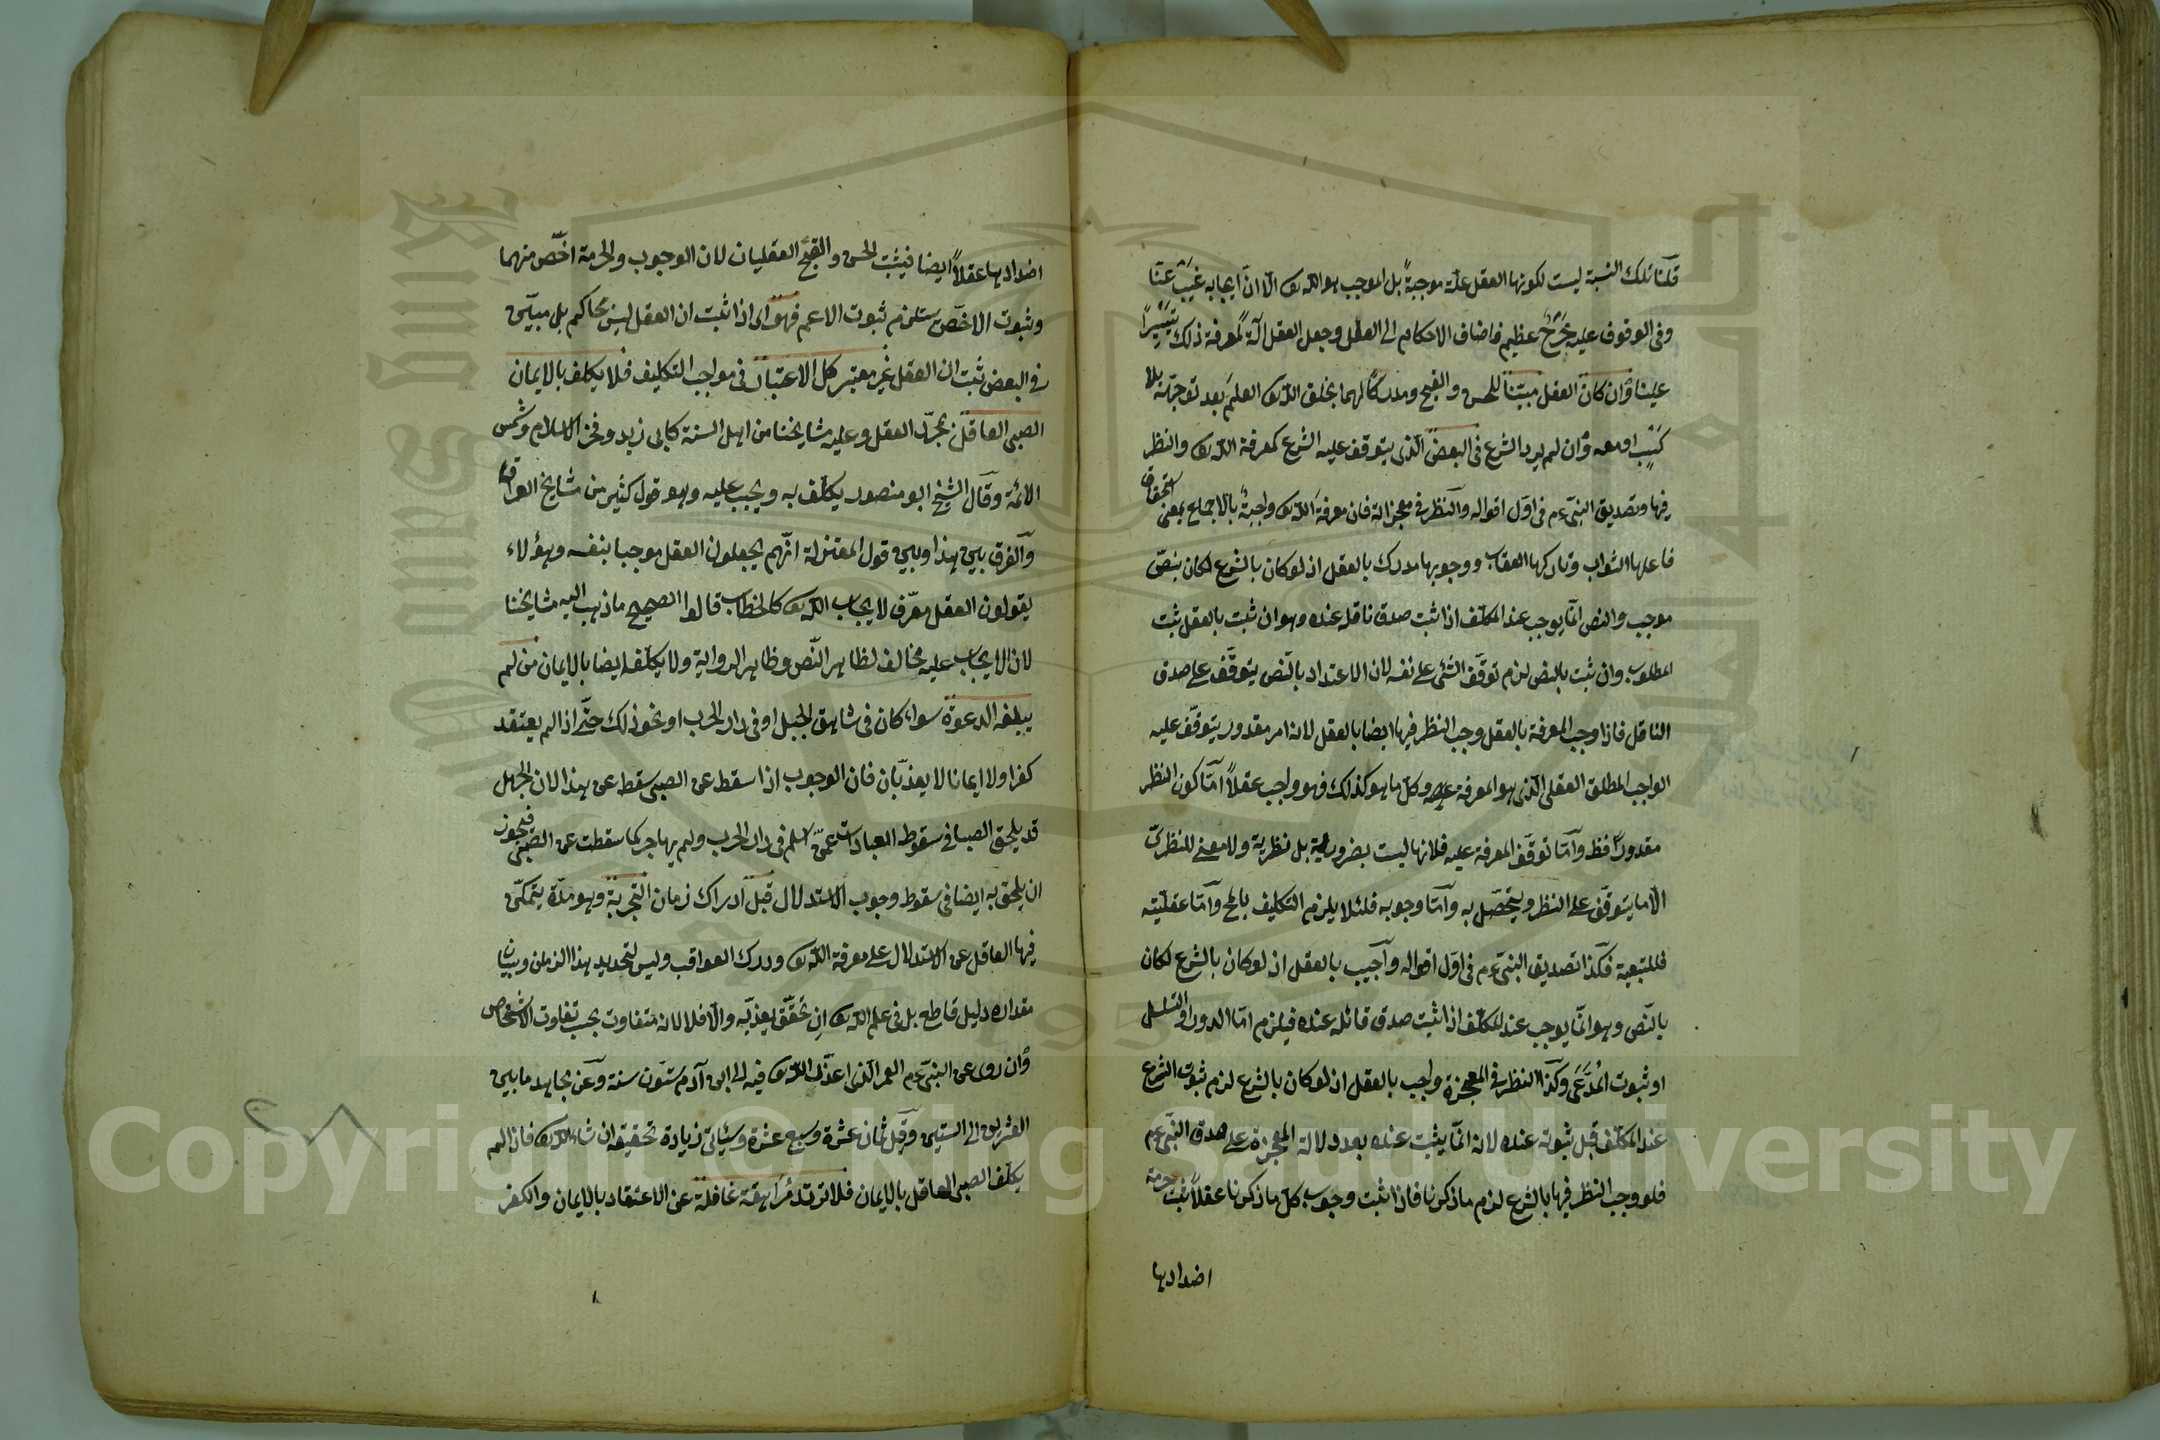 قلنا تلك النسبة ليست لكونها العقل علة موجبة بل الموجب هو الله تع الا ان ايجابه غيب عنا
وفى الوقوف عليه حرج عظيم فاضاف الاحكام الى العقل وجعل العقل آلة لمعرفة ذلك تيسيرا
علينا وان كان العقل مبينا للحسن والقبح ومدركا لهما بخلق الله تع العلم بعد توجهه بلا
كسب او معه وان لم يرد الشرع فى البعض الذى يتوقف عليه الشرع كمعرفة الله تع والنظر
فيها وتصديق النبى ءم فى اول اقواله والنظر فى معجزاته فان معرفة الله تع واجبة بالاجماع بمعنى استحقاق
فاعلها الثواب وتاركها العقاب ووجوبها مدرك بالعقل اذ لو كان بالشرع لكان بنص
موجب والنص انما يوجب عند المكلف اذا ثبت صدق ناقله عنده وهو ان ثبت بالعقل ثبت
المطلوب وان ثبت بالنص لزم توقف الشئ على نفسه لان الاعتداد بالنص يتوقف على صدق
الناقل فاذا وجب المعرفة بالعقل وجب النظر فيها ايضا بالعقل لانه امر مقدور يتوقف عليه
الواجب المطلق العقلى الذى هو المعرفة وكل ما هو كذلك فهو واجب عقلا اما كون النظر
مقدورا فظ واما توقف المعرفة عليه فلانها ليست بضرورية بل نظرية ولا معنى للنظرى
الا ما يتوقف على النظر ويتحصل به واما وجوبه فلئلا يلزم التكليف بالمح واما عقليته
فللتبعية فكذا تصديق النبى ءم فى اول اقواله واجب بالعقل اذ لو كان بالشرع لكان
بالنص وهو انما يوجب عند المكلف اذا ثبت صدق قائله عنده فيلزم اما الدور او التسلسل
او ثبوت المدعى وكذا النظر فى المعجزة واجب بالعقل اذ لو كان بالشرع لزم ثبوت الشرع
عند المكلف قبل ثبوته عنده لانه انما يثبت عنده بعد دلالة المعجزة على صدق النبى ءم
فلو وجب النظر فيها بالشرع لزم ما ذكرنا فاذا ثبت وجوب كل ما ذكرنا عقلا ثبت حرمة
اضدادها
اضدادها عقلا ايضا فيثبت الحسن والقبح العقليان لان الوجوب والحرمة اخص منهما
وثبوت الاخص يستلزم ثبوت الاعم فهو اى اذا ثبت ان العقل ليس بحاكم بل مبين
فى البعض ثبت ان العقل غير معتبر كل الاعتبار فى مواجب التكليف فلا يكلف بالايمان
الصبى العاقل بمجرد العقل وعليه مشايخنا من اهل السنة كابى زيد وفخر الاسلام وشمس
الائمة وقال الشيخ ابو منصور يكلف به ويجب عليه وهو قول كثير من مشايخ العراق
والفرق بين هذا وبين قول المعتزلة انهم يجعلون العقل موجبا بنفسه وهؤلاء
يقولون العقل معرف لايجاب الله تع كالخطاب قالوا الصحيح ما ذهب اليه مشايخنا
لان الايجاب عليه مخالف لظاهر النص وظاهر الرواية ولا يكلف ايضا بالايمان من لم
يبلغه الدعوة سواء كان فى شاهق الجبل او فى دار الحرب او نحو ذلك حتى اذا لم يعتقد
كفرا ولا ايمانا لا يعذبان فان الوجوب اذا سقط عن الصبى سقط عن هذا لان الجهل
قد يلحق الصبا فى سقوط العبادات عمن اسلم فى دار الحرب ولم يهاجر كما سقطت عن الصبى فيجوز
ان يلحق به ايضا فى سقوط وجوب الاستدلال قبل ادراك زمان التجربة وهو مدة يتمكن
فيها العاقل عن الاستدلال على معرفة الله تع ودرك العواقب وليس لتحديد هذا الزمان وبيان
مقداره دليل قاطع بل فى علم الله تع ان تحقق يعذبه والا فلا لانه متفاوت بحسب تفاوت الاشخاص
وان روى عن النبى ءم العمر الذى اعذر الله تع فيه الى ابن آدم ستون سنة وعن مجاهد ما بين
العشرين الى الستين وقيل ثمان عشرة وسبع عشرة وسيأتى زيادة تحقيقه ان شاء الله تع فاذا لم
يكلف الصبى العاقل بالايمان فلا ترتد مراهقة غافلة عن الاعتقاد بالايمان والكفر
Copyright © King Saud University